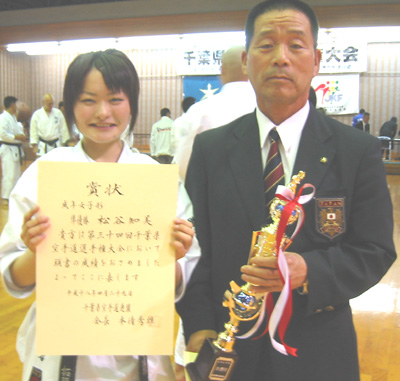 千葉県
大会
賞状
成年女子形
準優勝 松谷知美
貴方は第三十四回千葉県
空手道選手権大会において
頭書の成績をおさめました
よってここに表します
平成十八年四月二十九日
千葉県空手道連盟
会長 本清秀雄
JKF